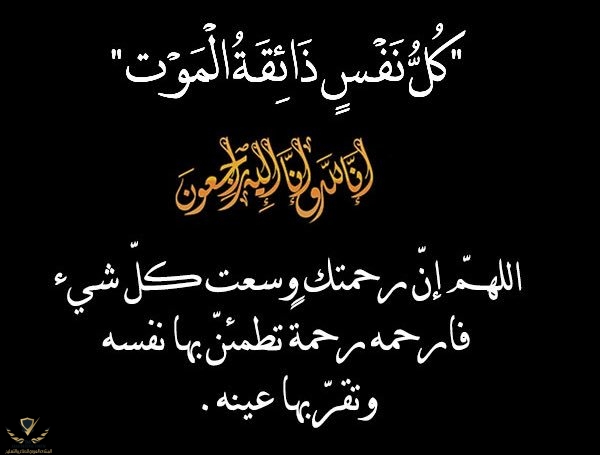 "كُلُّ نَفْسٍ ذَائِقَةُ الْمَوْت"
إنَّا لله وإنَّا إليه راجعون
اللهمّ إنّ رحمتك وسعت كلّ شيء
فارحمه رحمة تطمئنّ بها نفسه
وتقرّ بها عينه .